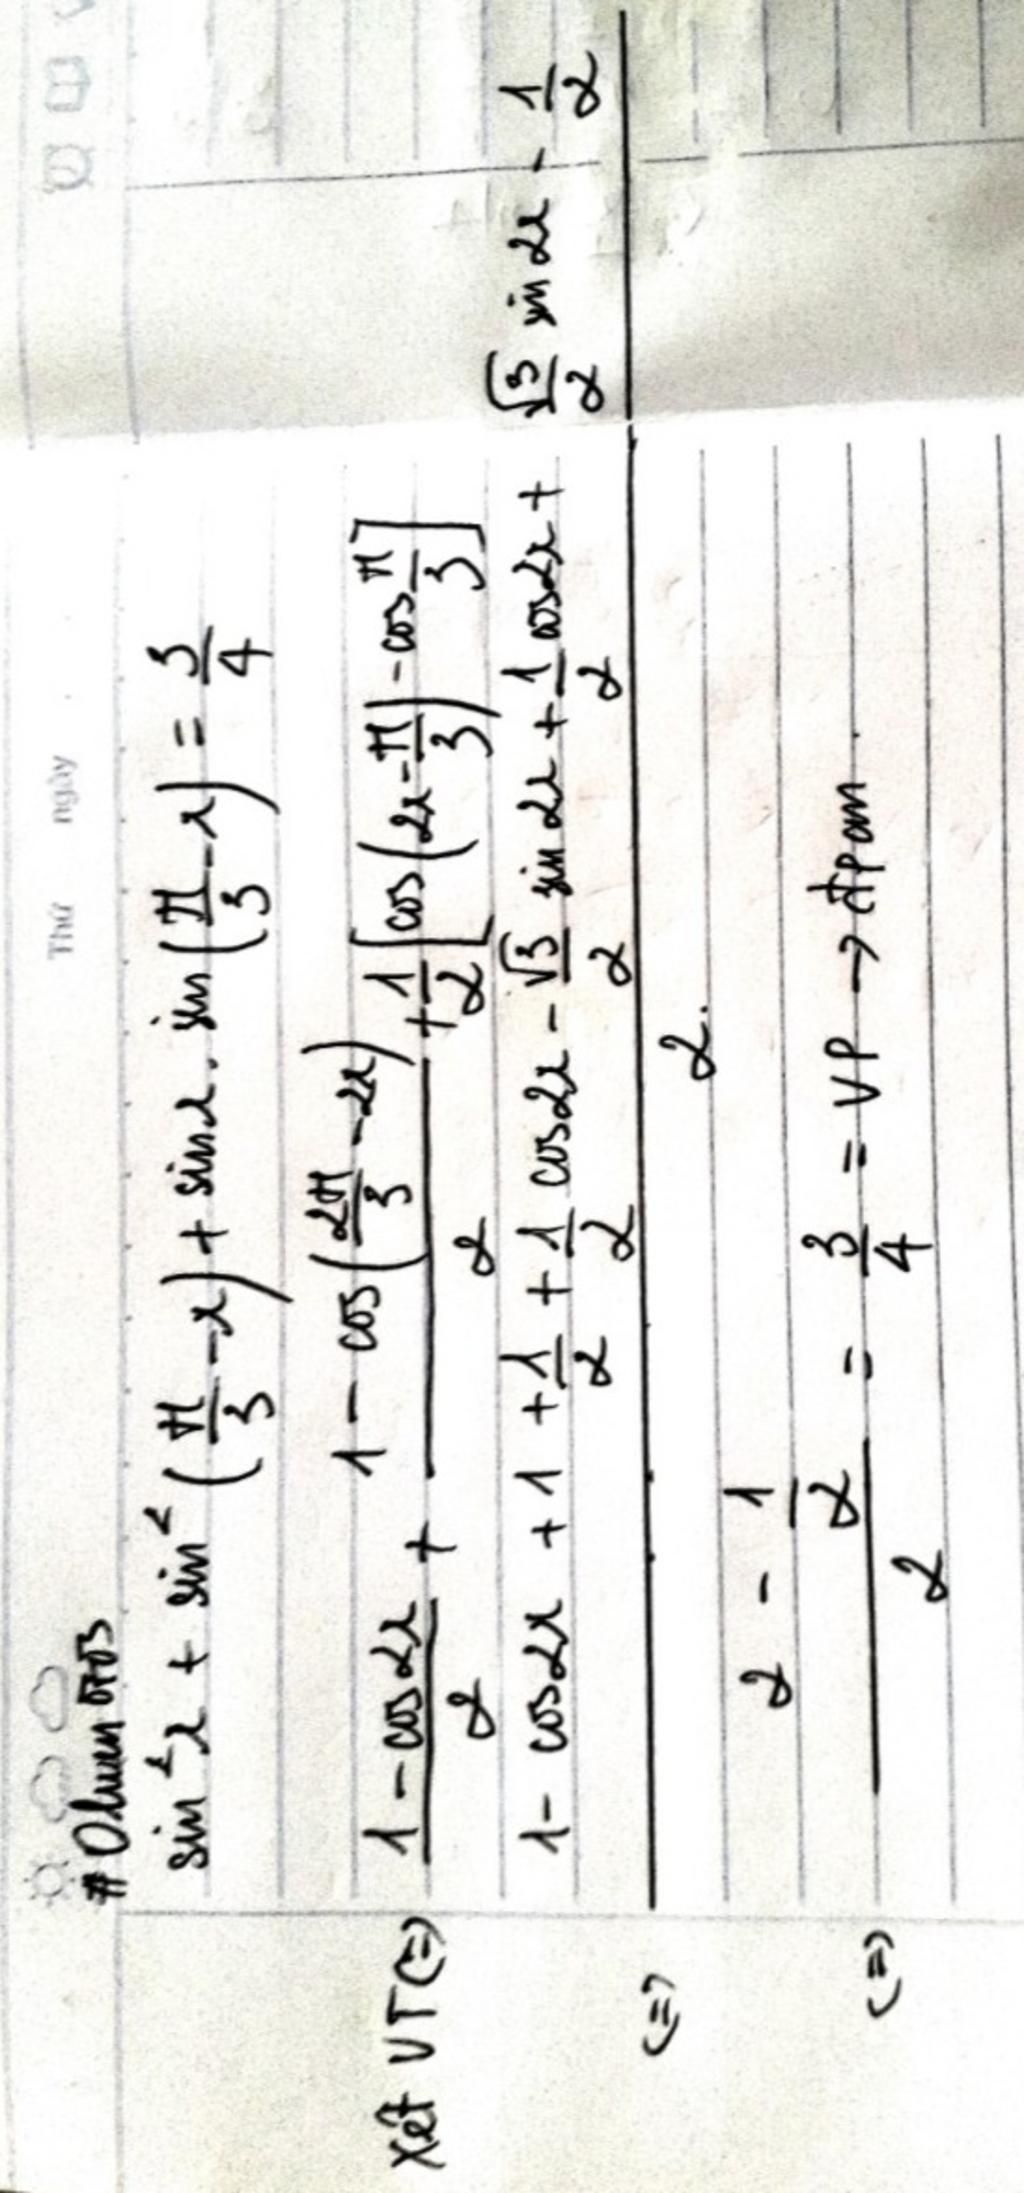 Thứ ngày .
sin²x + sin²(π/3 - x) + sinx . sin(π/3 - x) = 3/4
Xét VT (=) (1 - cos2x)/2 + (1 - cos(2π/3 - 2x))/2 + 1/2 [cos(2x - π/3) - cos π/3]
(=) (1 - cos2x + 1 + 1/2 + 1/2 cos2x - √3/2 sin2x + 1/2 cos2x + √3/2 sin2x - 1/2)/2.
(=) (2 - 1/2)/2 = 3/4 = VP → đpcm.